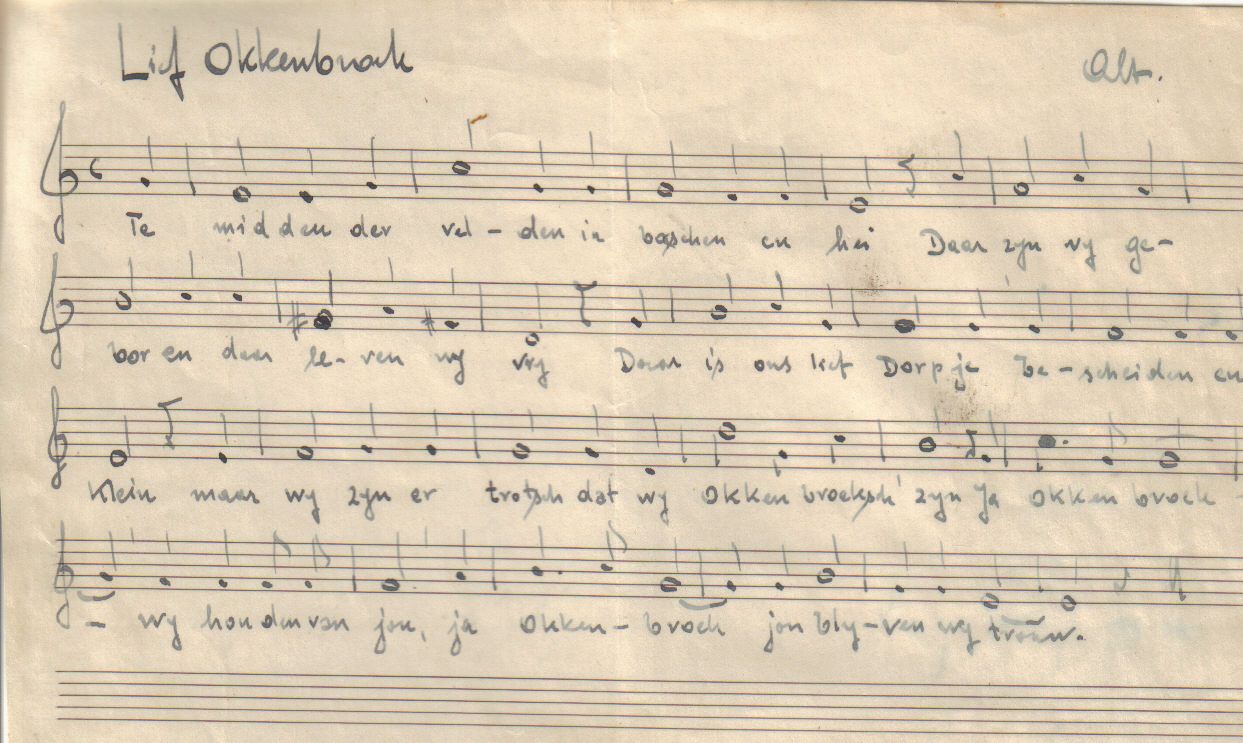 Lief Okkenbroek Alt.
Te midden der vel - den in bosschen en hei Daar zyn wy ge -
bor en daar le - ven wy vry Daar is ons lief Dorp je be - scheiden en
Klein maar wy zyn er trotsch dat wy Okken broeksch' zyn Ja Okken broek -
- wy houden van jou, ja Okken - broek jou bly - ven wy trouw.